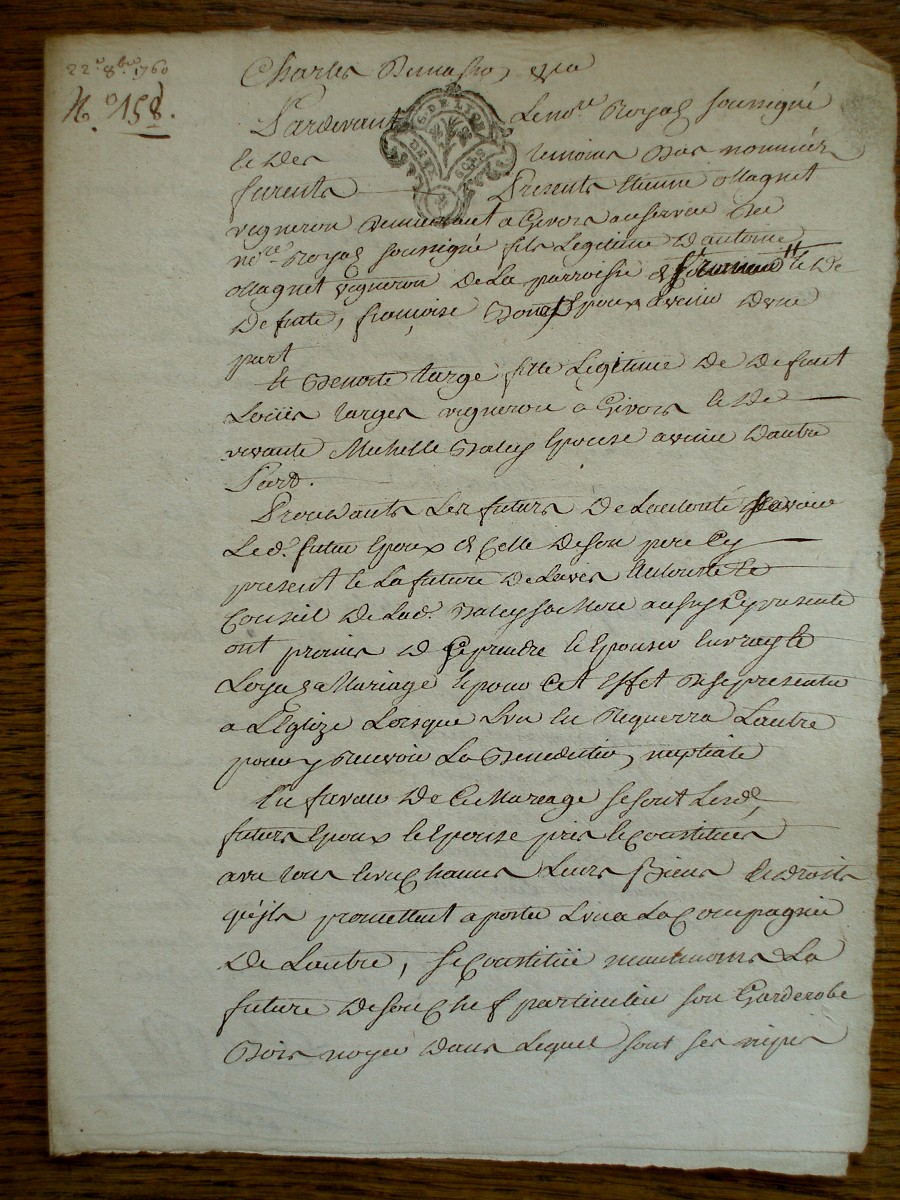 22e 8bre 1760
N.o 158.
Charles
G. DE LYON
Pardevant Le nore Royal soussigné
et des temoins bas nommés
furents Presents Etienne Magnet
vigneron demeurant a Givors au service du
nore Royal soussigné fils Legitime d'antoine
Magnet vigneron de La parroisse de et de
Defunte, françoise Epoux avenir d'une
part
Et Benoite targe fille Legitime de defunt
Loüis targes vigneron a Givors et de
vivante Michelle Epouse avenir d'autre
Part.
Procedants Les futurs de L'authorité sçavoir
Led. futur Epoux de Celle de son pere Cy
present et La future de L'avis authorité et
Conseil de Lad. sa Mere aussy Cy presente
ont promis de se prendre et Epouser en vray et
Loyal Mariage et pour Cet Effet de se presenter
a L'Eglize Lorsque L'un En Requerra L'autre
pour y Recevoir La Benediction nuptiale
En faveur de Ce Mareage se sont Lesd.
futurs Epoux et Epouse pris et Constitués
avec tous et un Chacuns Leurs Biens et droits
qu'ils promettent aporter L'un a La Compagnie
De Lautre, se Constitüe neantmoins La
future de son Chef particulier son Garderobe
Bois noyer dans Lequel sont ses nipes